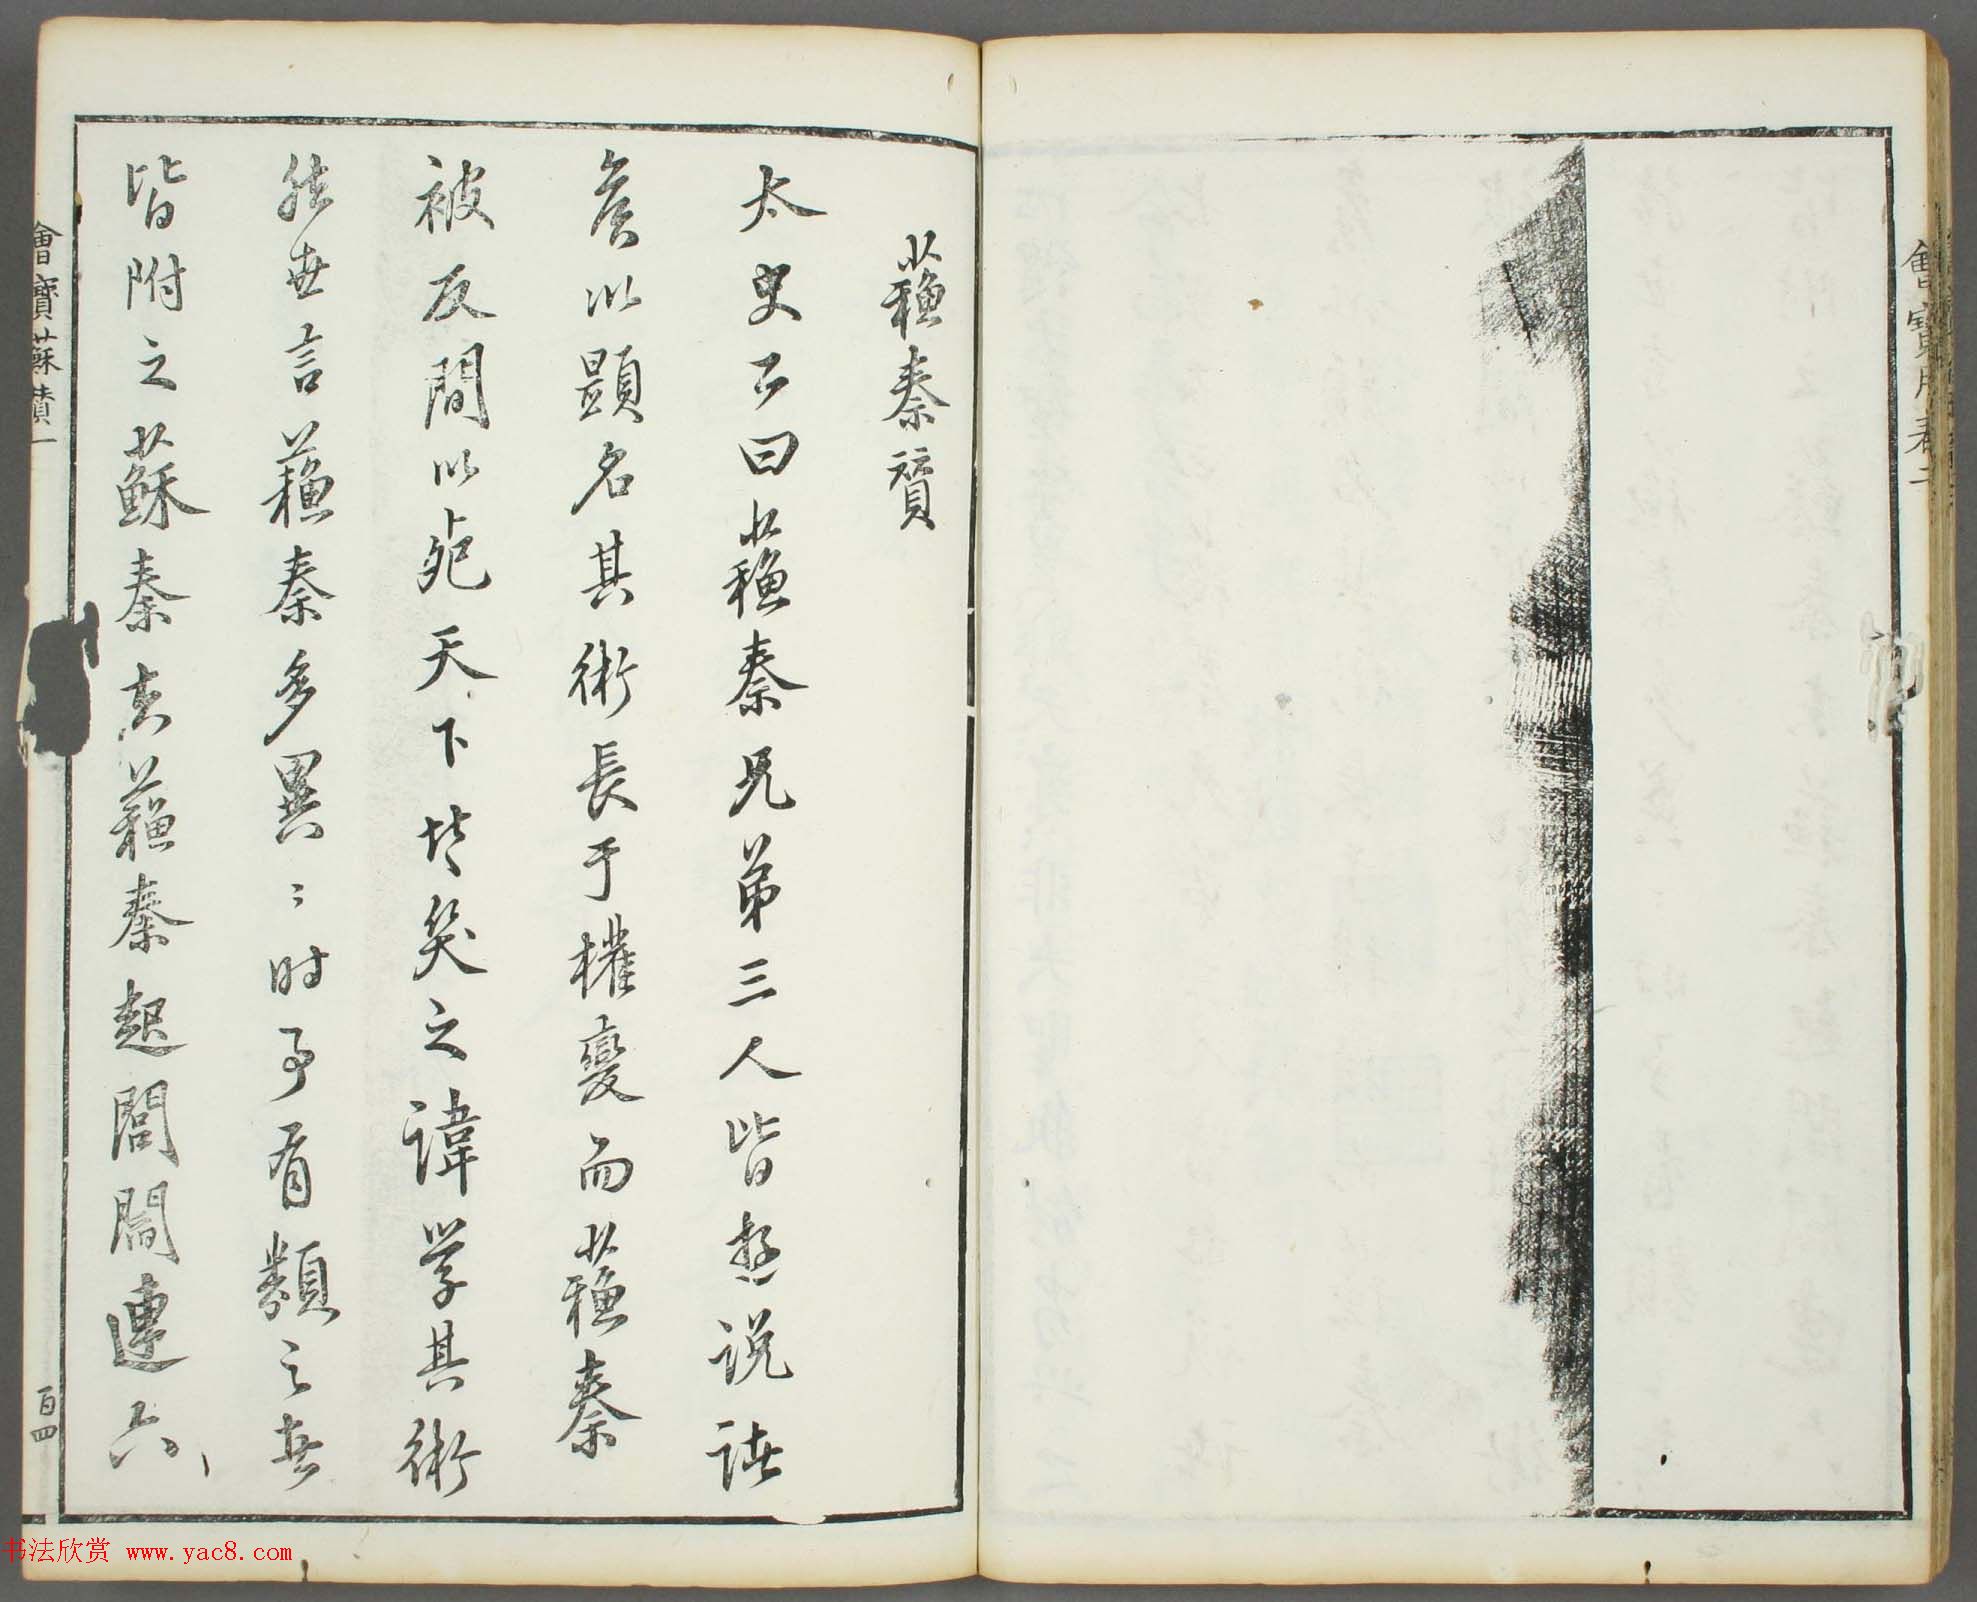 蘓秦贊
太史公曰蘓秦兄弟三人皆遊説諸
矦以顯名其術長于權變而蘓秦
被反間以死天下共笑之諱學其術
然世言蘓秦多異〻時事有類之者
皆附之蘇秦夫蘓秦起閭閻連六
會寶蘇賛一
百四
书法欣赏 www.yac8.com